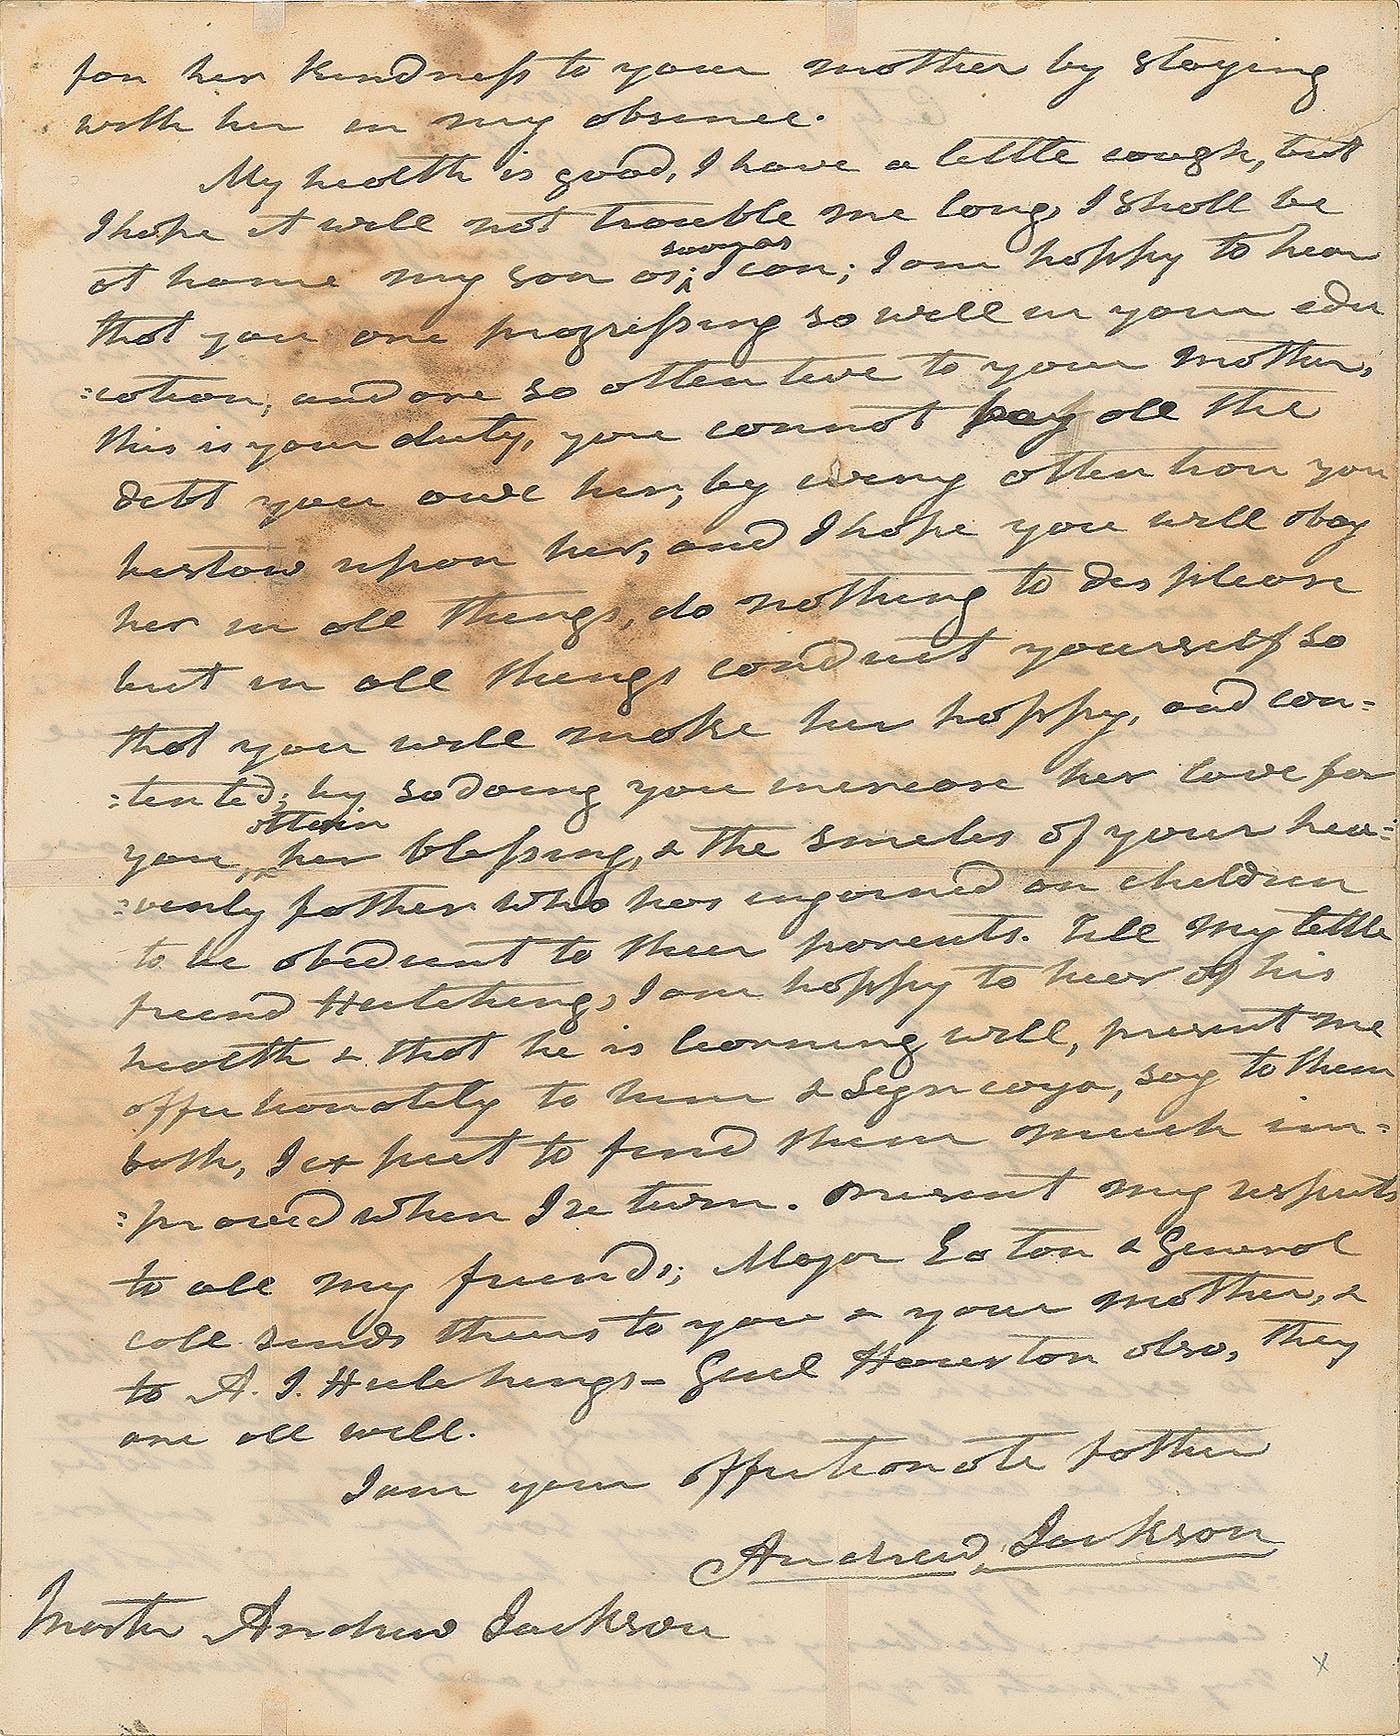 for her kindness to your mother by staying
with her in my absence.
My health is good, I have a little cough, but
I hope it will not trouble me long, I shall be
at home my son as; soon as I can; I am happy to hear
that you are progressing so well in your edu
=cation, and are so attentive to your mother,
this is your duty, you cannot pay all the
debt you owe her, by every attention you
bestow upon her, and I hope you will obay
her in all things, do nothing to displease
but in all things conduct yourself so
that you will make her happy, and con=
=tented; by so doing you increase her love for
you, attain her blessing, & the smiles of your hea=
=venly father who has injoined on children
to be obedient to their parents. Tell my little
friend Hutchings, I am happy to hear of his
health & that he is learning well, present me
affectionately to him & Lyncoya, say to them
both, I expect to find them much im=
=proved when I return. present my respects
to all my friends; Major Eaton & General
call sends theirs to you & your mother, &
to A. J. Hutchings - Genl Houston also, they
are all well.
I am your affectionate father
Andrew Jackson
Master Andrew Jackson
x